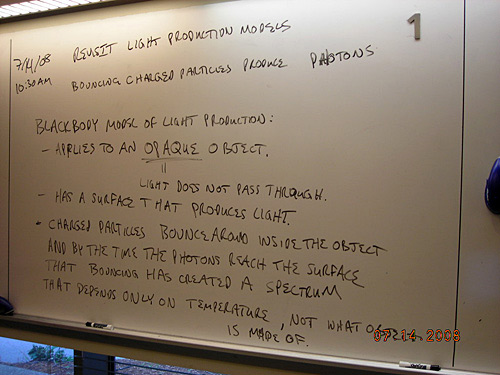 1
7/14/08 REVISIT LIGHT PRODUCTION MODELS
10:30AM BOUNCING CHARGED PARTICLES PRODUCE PHOTONS
BLACKBODY MODEL OF LIGHT PRODUCTION:
- APPLIES TO AN OPAQUE OBJECT.
LIGHT DOES NOT PASS THROUGH.
- HAS A SURFACE THAT PRODUCES LIGHT.
- CHARGED PARTICLES BOUNCE AROUND INSIDE THE OBJECT
AND BY THE TIME THE PHOTONS REACH THE SURFACE
THAT BOUNCING HAS CREATED A SPECTRUM
THAT DEPENDS ONLY ON TEMPERATURE, NOT WHAT
IS MADE OF.
07.14.2008